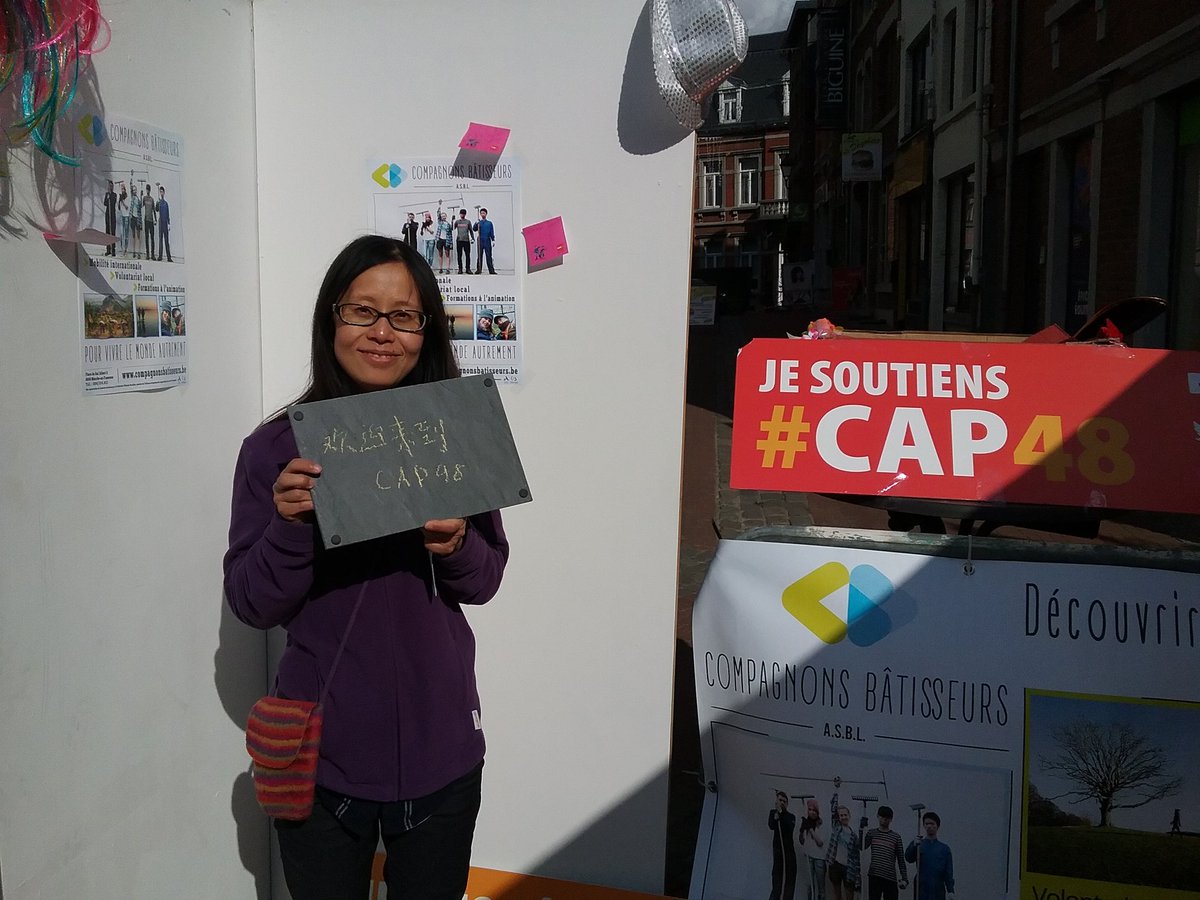 COMPAGNONS BÂTISSEURS
A.S.B.L.
Mobilité internationale
Volontariat local
Formations à l'animation
POUR VIVRE LE MONDE AUTREMENT
www.compagnonsbatisseurs.be
COMPAGNONS BÂTISSEURS
A.S.B.L.
Formations à l'animation
MONDE AUTREMENT
欢迎来到
CAP 48
BIGUINE
JE SOUTIENS
#CAP48
COMPAGNONS BÂTISSEURS
A.S.B.L.
Découvrir